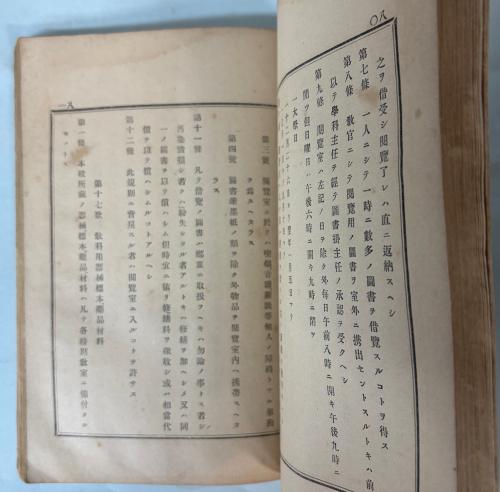 八〇
之ヲ借受シ閲覽了レハ直ニ返納スヘシ
第七條 一人ニシテ一時ニ數多ノ圖書ヲ借覽スルコトヲ得ス
第八條 教官ニシテ閲覽用ノ圖書ヲ室外ニ携出セントスルトキハ前
以テ學科主任ヲ經テ圖書掛主任ノ承認ヲ受クヘシ
第九條 閲覽室ハ左記ノ日ヲ除ク外每日午前八時ニ開キ午後九時ニ
閉ツ但日曜日ハ午後六時ニ開キ九時ニ閉ツ
一大祭日
第三號 閲覽室ニ於テハ
ヲ爲スヘカラス
第四號 圖書筆墨紙ノ類ヲ除ク外物品ヲ閲覽室內ヘ携帶スヘカ
ラス
第十一條 凡ソ借覽ノ圖書ハ鄭重ニ取扱フヘキハ勿論ノ事トス若シ
汚染毀損シ若クハ紛失シタル者アルトキハ修繕ヲ加ヘシメ又ハ同
一ノ圖書ヲ以テ償ハシム但時宜ニ依リ修繕料ヲ徵收シ或ハ相當代
價ヲ以テ償ハシムルコトアルヘシ
第十二條 此規則ニ背戾スル者ハ閲覽室ニ入ルコトヲ許サス
第十七款 教科用器械標本藥品材料
第一條 本校所藏ノ器械標本藥品材料ハ凡テ各特別教室ニ備付クル
八一